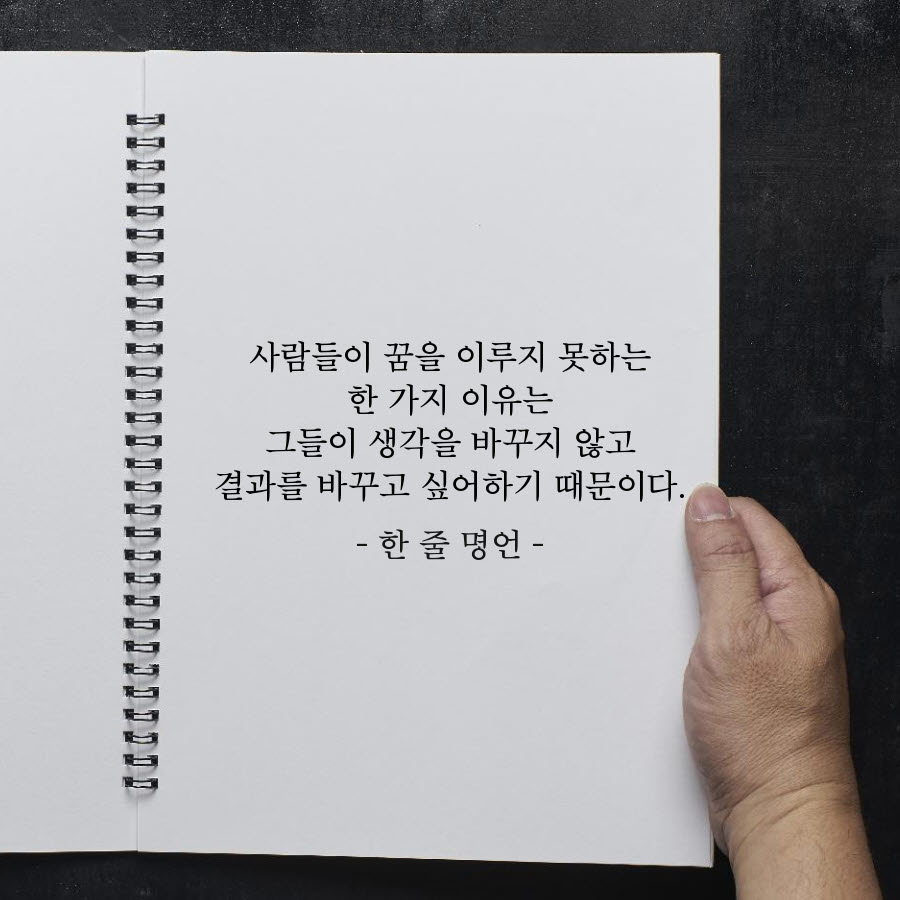 사람들이 꿈을 이루지 못하는
한 가지 이유는
그들이 생각을 바꾸지 않고
결과를 바꾸고 싶어하기 때문이다.
- 한 줄 명언 -